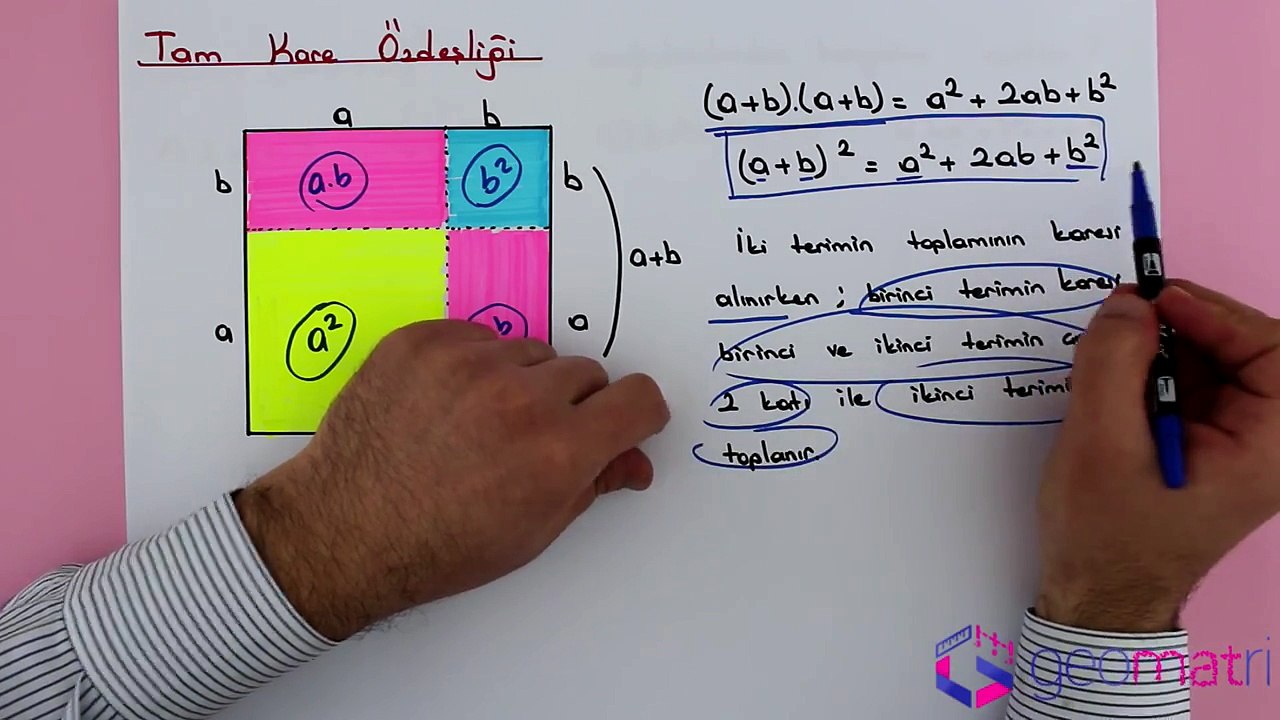 Tam Kare Özdeşliği
a b
b a.b b² b
a+b
a a² b a
(a+b).(a+b) = a² + 2ab + b²
(a+b)² = a² + 2ab + b²
İki terimin toplamının karesi
alınırken ; birinci terimin karesi
birinci ve ikinci terimin
2 katı ile ikinci
toplanır
geomatri